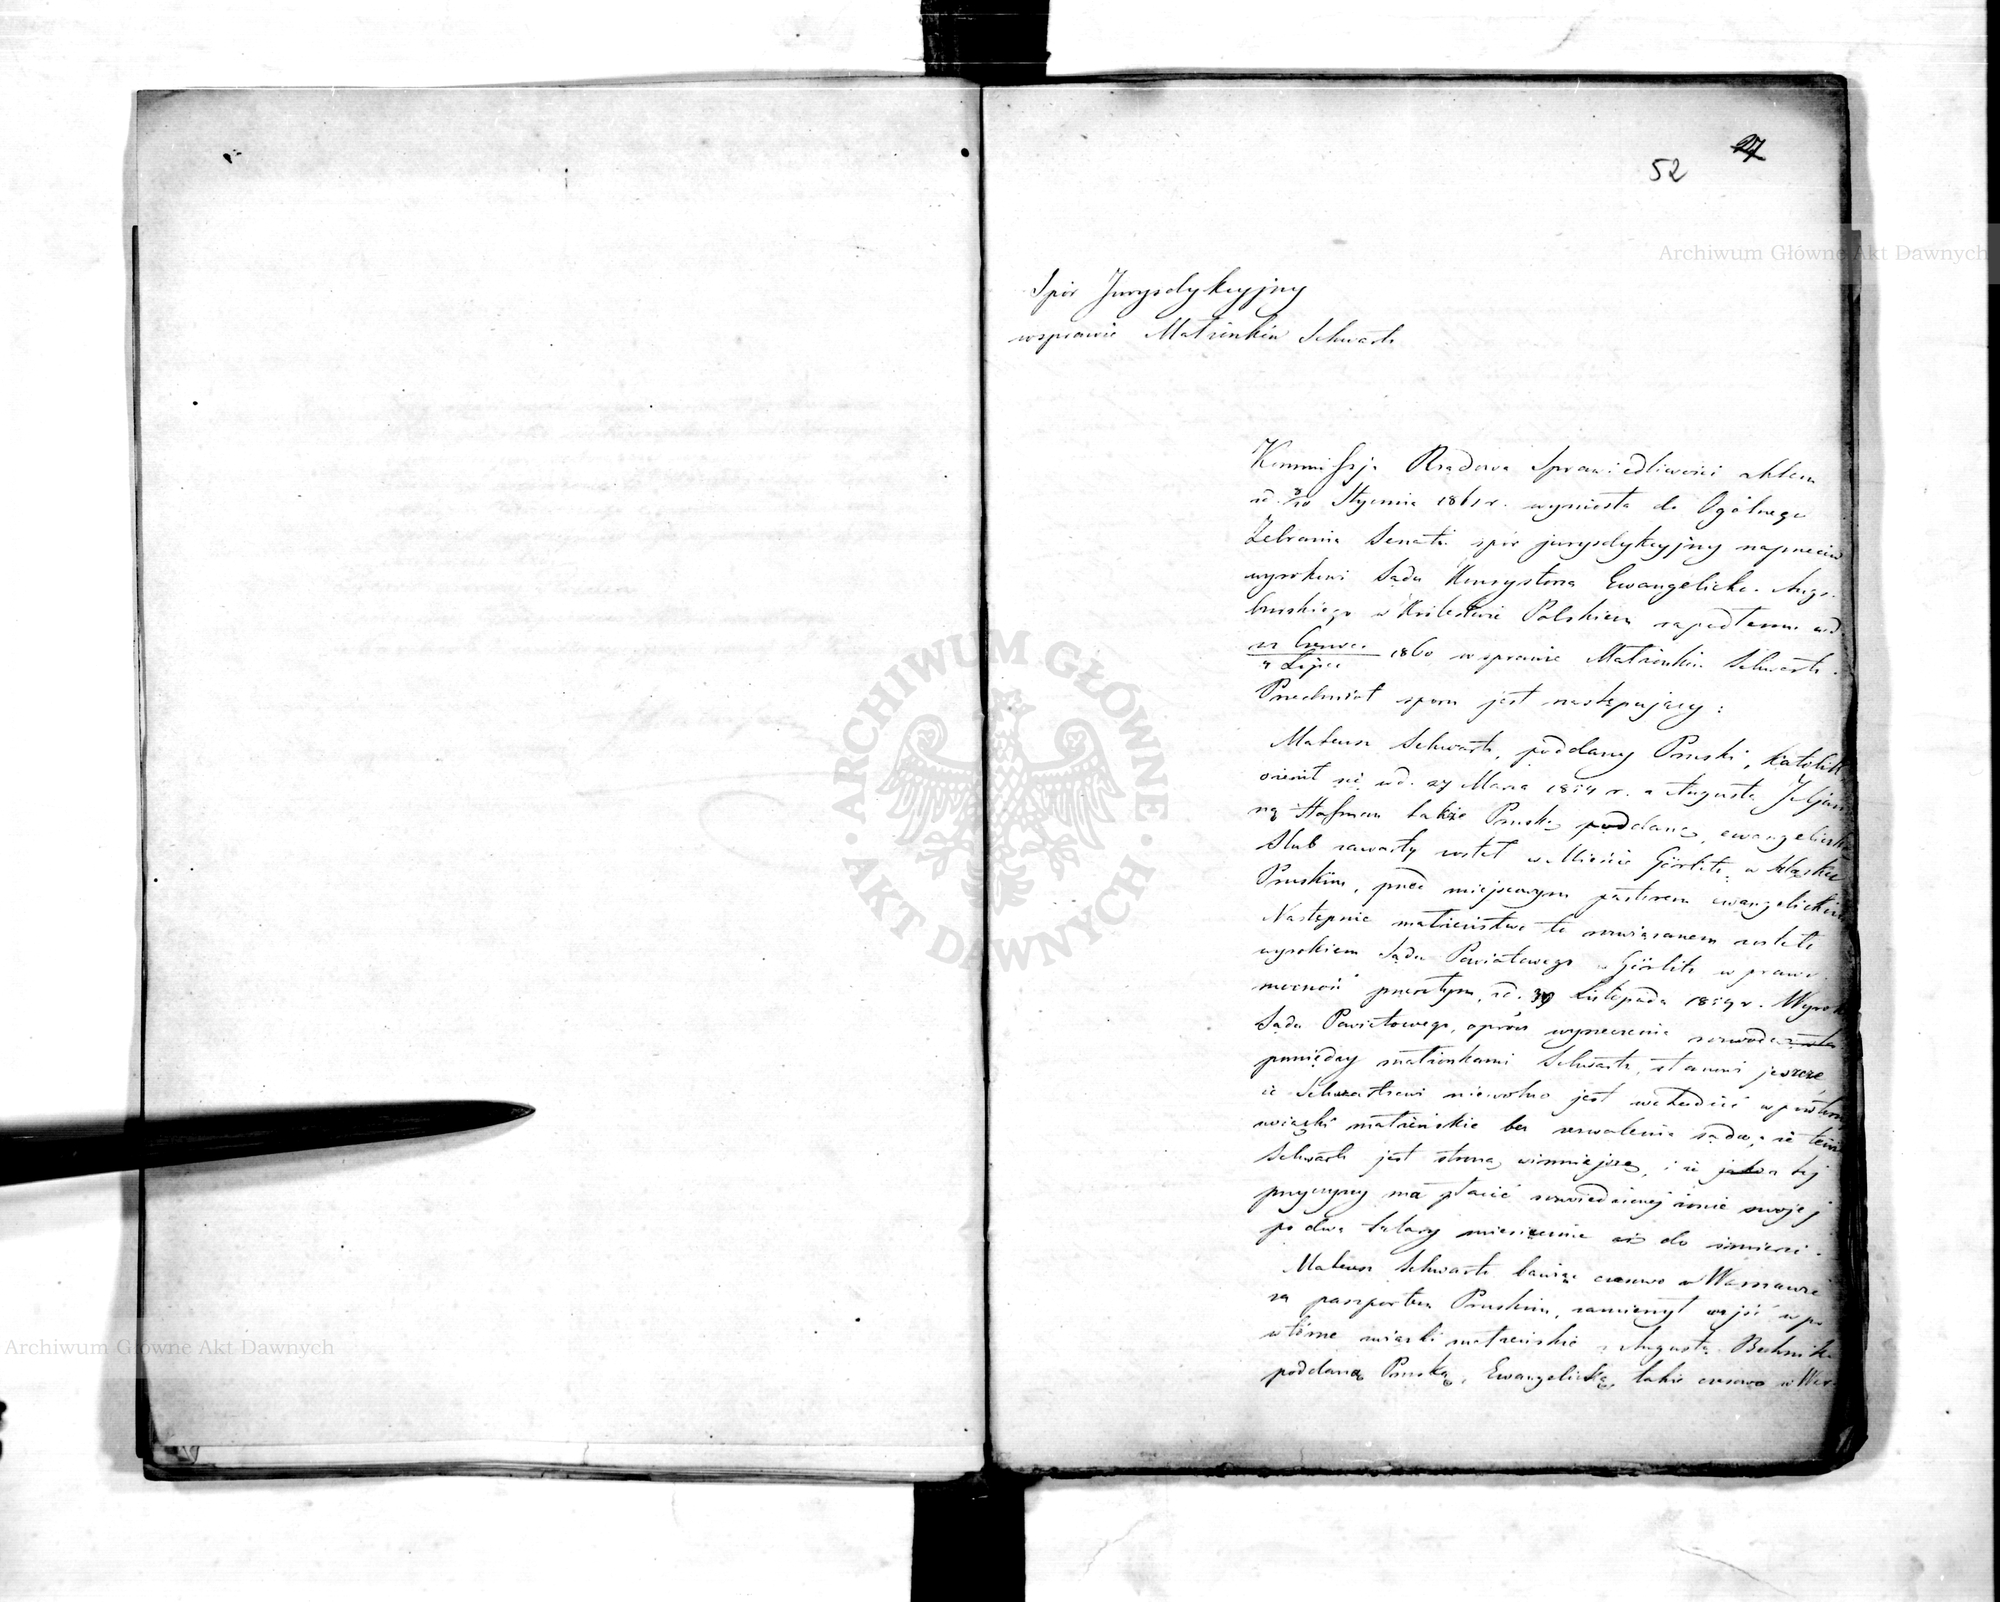 27
52
Spór Jurysdykcyjny
w sprawie Małżonków Schwartz
Kommissja Rządowa Sprawiedliwości aktem
z d. 8/20 Stycznia 1861 r. wyniosła do Ogólnego
Zebrania Senatu spór jurysdykcyjny naprzeciw
wyrokowi Sądu Konsystorza Ewangelicko-Augs-
burskiego w Królestwie Polskiem zapadłemu w d.
Czerwca
Lipca 1860 w sprawie Małżonków Schwartz.
Przedmiot sporu jest następujący:
Mateusz Schwartz, poddany Pruski, katolik
ożenił się w d. 27 Marca r. z Augustą
Hofman także Pruską poddaną, ewangeliczką
Ślub zawarty został w Mieście Görlitz, w Szląsku
Pruskim, przed miejscowym pastorem ewangelickim
Następnie małżeństwo to rozwiązanem zostało
wyrokiem Sądu Powiatowego w Görlitz w prawo-
mocność przeszłym, z d. Listopada 1857 r. Wyrok
Sądu Powiatowego, oprócz wyrzeczenia rozwodu
pomiędzy małżonkami Schwartz, stanowi jeszcze,
że Schwartzowi niewolno jest wchodzić w powtórne
związki małżeńskie bez zezwolenia sądu, że tenże
Schwartz jest stroną winniejszą, i że z tej
przyczyny ma płacić rozwiedzionej żonie swojej
po dwa talary miesięcznie aż do śmierci.
Mateusz Schwartz bawiąc czasowo w Warszawie
za paszportem Pruskim, zamierzył wejść w po-
wtórne związki małżeńskie z Augustą
poddaną Pruską, Ewangeliczką, także czasowo w War-
ARCHIWUM GŁÓWNE
AKT DAWNYCH
Archiwum Główne Akt Dawnych
Archiwum Główne Akt Dawnych